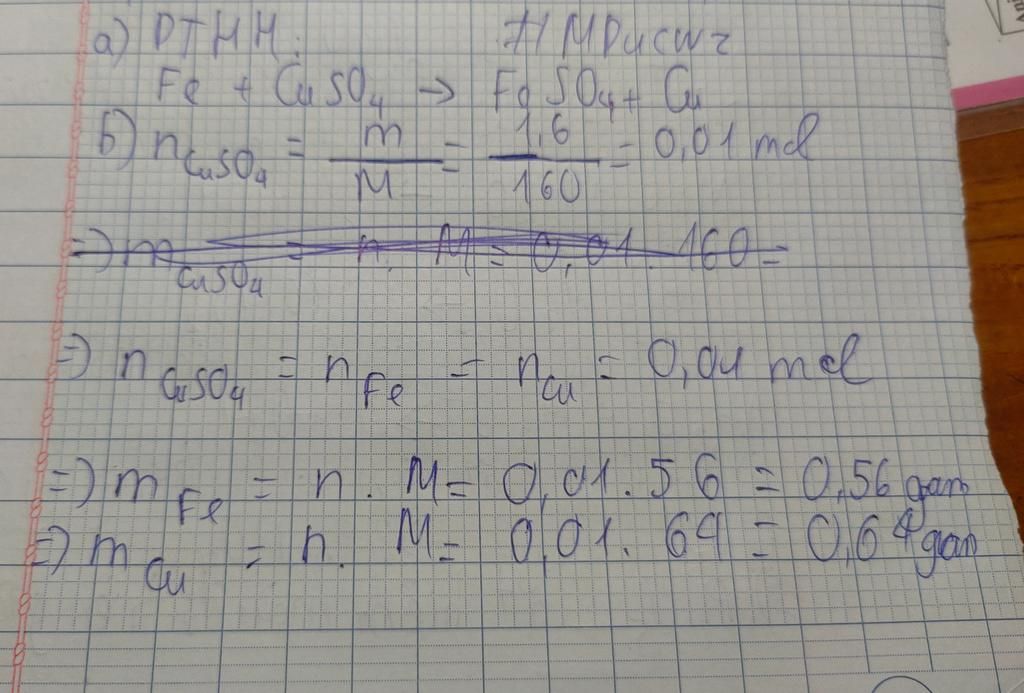 a) PTHH:
Fe + CuSO4 → FeSO4 + Cu
b) nCuSO4 = m/M = 1,6/160 = 0,01 mol
=) mCuSO4 = n. M = 0,01. 160 =
=) nCuSO4 = nFe = nCu = 0,01 mol
=) mFe = n. M = 0,01. 56 = 0,56 gam
=) mCu = n. M = 0,01. 64 = 0,64 gam